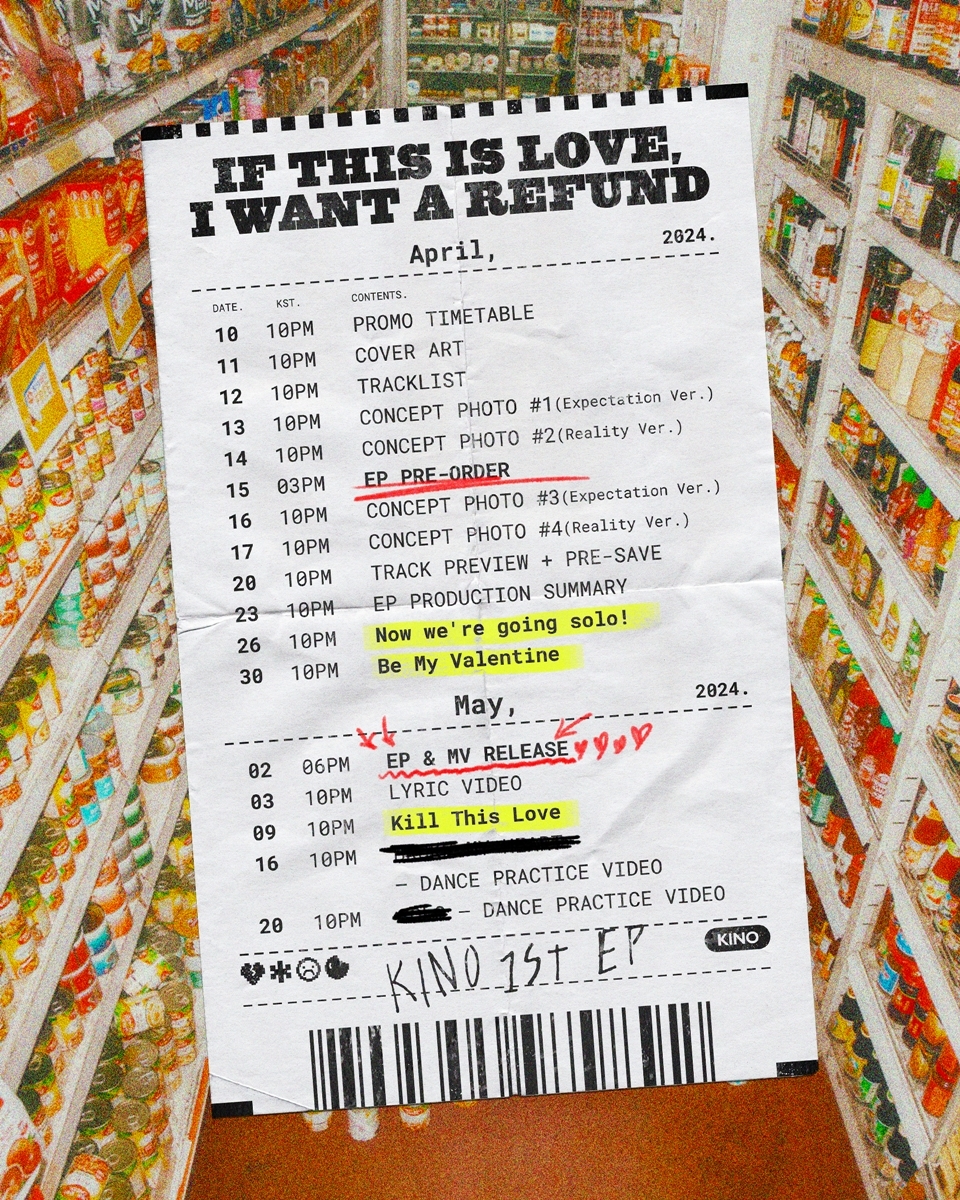 IF THIS IS LOVE,
I WANT A REFUND
April, 2024.
DATE. KST. CONTENTS.
10 10PM PROMO TIMETABLE
11 10PM COVER ART
12 10PM TRACKLIST
13 10PM CONCEPT PHOTO #1(Expectation Ver.)
14 10PM CONCEPT PHOTO #2(Reality Ver.)
15 03PM EP PRE-ORDER
16 10PM CONCEPT PHOTO #3(Expectation Ver.)
17 10PM CONCEPT PHOTO #4(Reality Ver.)
20 10PM TRACK PREVIEW + PRE-SAVE
23 10PM EP PRODUCTION SUMMARY
26 10PM Now we're going solo!
30 10PM Be My Valentine
May, 2024.
02 06PM EP & MV RELEASE
03 10PM LYRIC VIDEO
09 10PM Kill This Love
16 10PM
– DANCE PRACTICE VIDEO
20 10PM – DANCE PRACTICE VIDEO
KINO
KINO 1ST EP